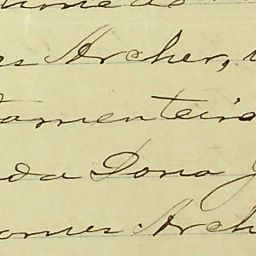 Archer,
tamenteiro
da Dona J
omes Arch